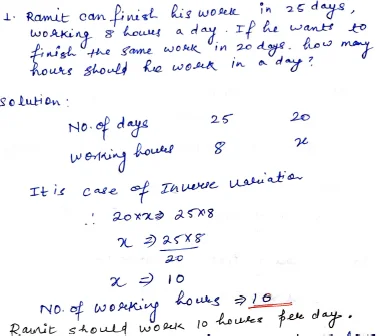 1. Ramit can finish his work in 25 days,
working 8 hours a day. If he wants to
finish the same work in 20 days. how many
hours should he work in a day?
Solution:
No. of days 25 20
working hours 8 x
It is case of Inverse variation
∴ 20 × x ⇒ 25×8
x ⇒ 25×8
20
x ⇒ 10
No. of working hours ⇒ 10
Ramit should work 10 hours per day.